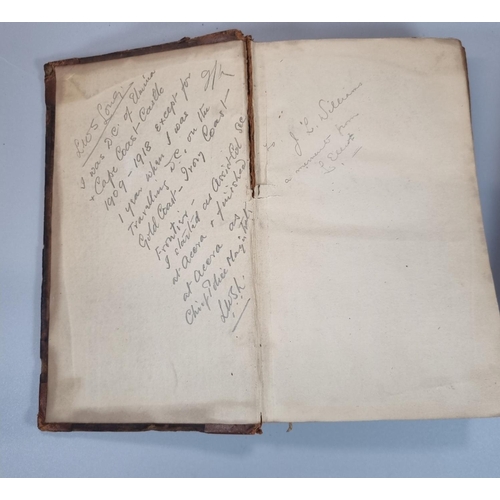 Leo S. Long.
I was D.C. of Elmina
+ Cape Coast Castle
1909 - 1918 except for
1 year when I was a/
Travelling D.C. on the
Gold Coast - Ivory Coast
Frontier -
I started as Assist Col Sec
at Accra & finished
at Accra as
Chief Police Magistrate.
L.W.S.L.
To
J. L. Williams
a memento from
Elliot